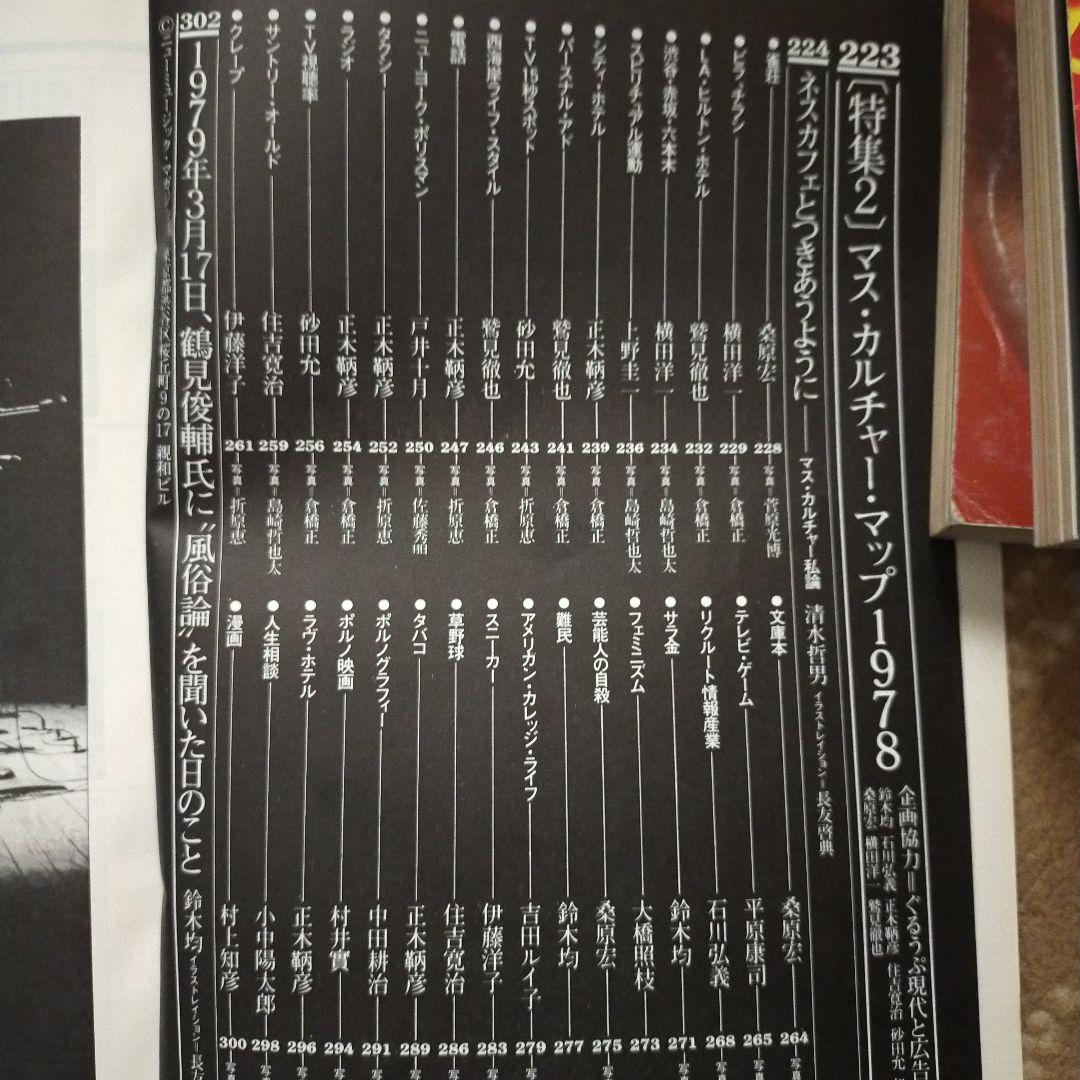 223 [特集2]マス・カルチャー・マップ1978
企画協力=ぐるうぷ現代と広告
鈴木均 石川弘義 正木鞆彦 住吉寛治 砂田允
桑原宏 横田洋一 鷲見徹也
224 ネスカフェとつきあうように——マス・カルチャー私論 清水哲男 イラストレイション=長友啓典
桑原宏 228 写真=菅原光博
●ピラ・チラン 横田洋一 229 写真=倉橋正
●LA・ヒルトン・ホテル 鷲見徹也 232 写真=倉橋正
●渋谷・赤坂・六本木 横田洋一 234 写真=島崎哲也太
●スピリチュアル運動 上野圭一 236 写真=島崎哲也太
●シティ・ホテル 正木鞆彦 239 写真=倉橋正
●パースナル・アド 鷲見徹也 241 写真=倉橋正
●TV15秒スポット 砂田允 243 写真=折原恵
●西海岸ライフ・スタイル 鷲見徹也 246 写真=倉橋正
●電話 正木鞆彦 247 写真=折原恵
●ニューヨーク・ポリスマン 戸井十月 250 写真=佐藤秀明
●タクシー 正木鞆彦 252 写真=折原恵
●ラジオ 正木鞆彦 254 写真=倉橋正
●TV視聴率 砂田允 256 写真=倉橋正
●サントリー・オールド 住吉寛治 259 写真=島崎哲也太
●クレープ 伊藤洋子 261 写真=折原恵
●文庫本 桑原宏 264 写
●テレビ・ゲーム 平原康司 265 写真
●リクルート情報産業 石川弘義 268 写
●サラ金 鈴木均 271 写
●フェミニズム 大橋照枝 273 写
●芸能人の自殺 桑原宏 275 写
●難民 鈴木均 277 写
●アメリカン・カレッジ・ライフ 吉田ルイ子 279 写
●スニーカー 伊藤洋子 283 写
●草野球 住吉寛治 286 写
●タバコ 正木鞆彦 289 写
●ポルノグラフィー 中田耕治 291 写
●ポルノ映画 村井實 294 写
●ラヴ・ホテル 正木鞆彦 296 写
●人生相談 小中陽太郎 298 写
●漫画 村上知彦 300 写真
302 1979年3月17日、鶴見俊輔氏に“風俗論”を聞いた日のこと 鈴木均 イラストレイション=長友
©ニューミュージック・マガジン 東京都渋谷区桜丘町9の17 親和ビル